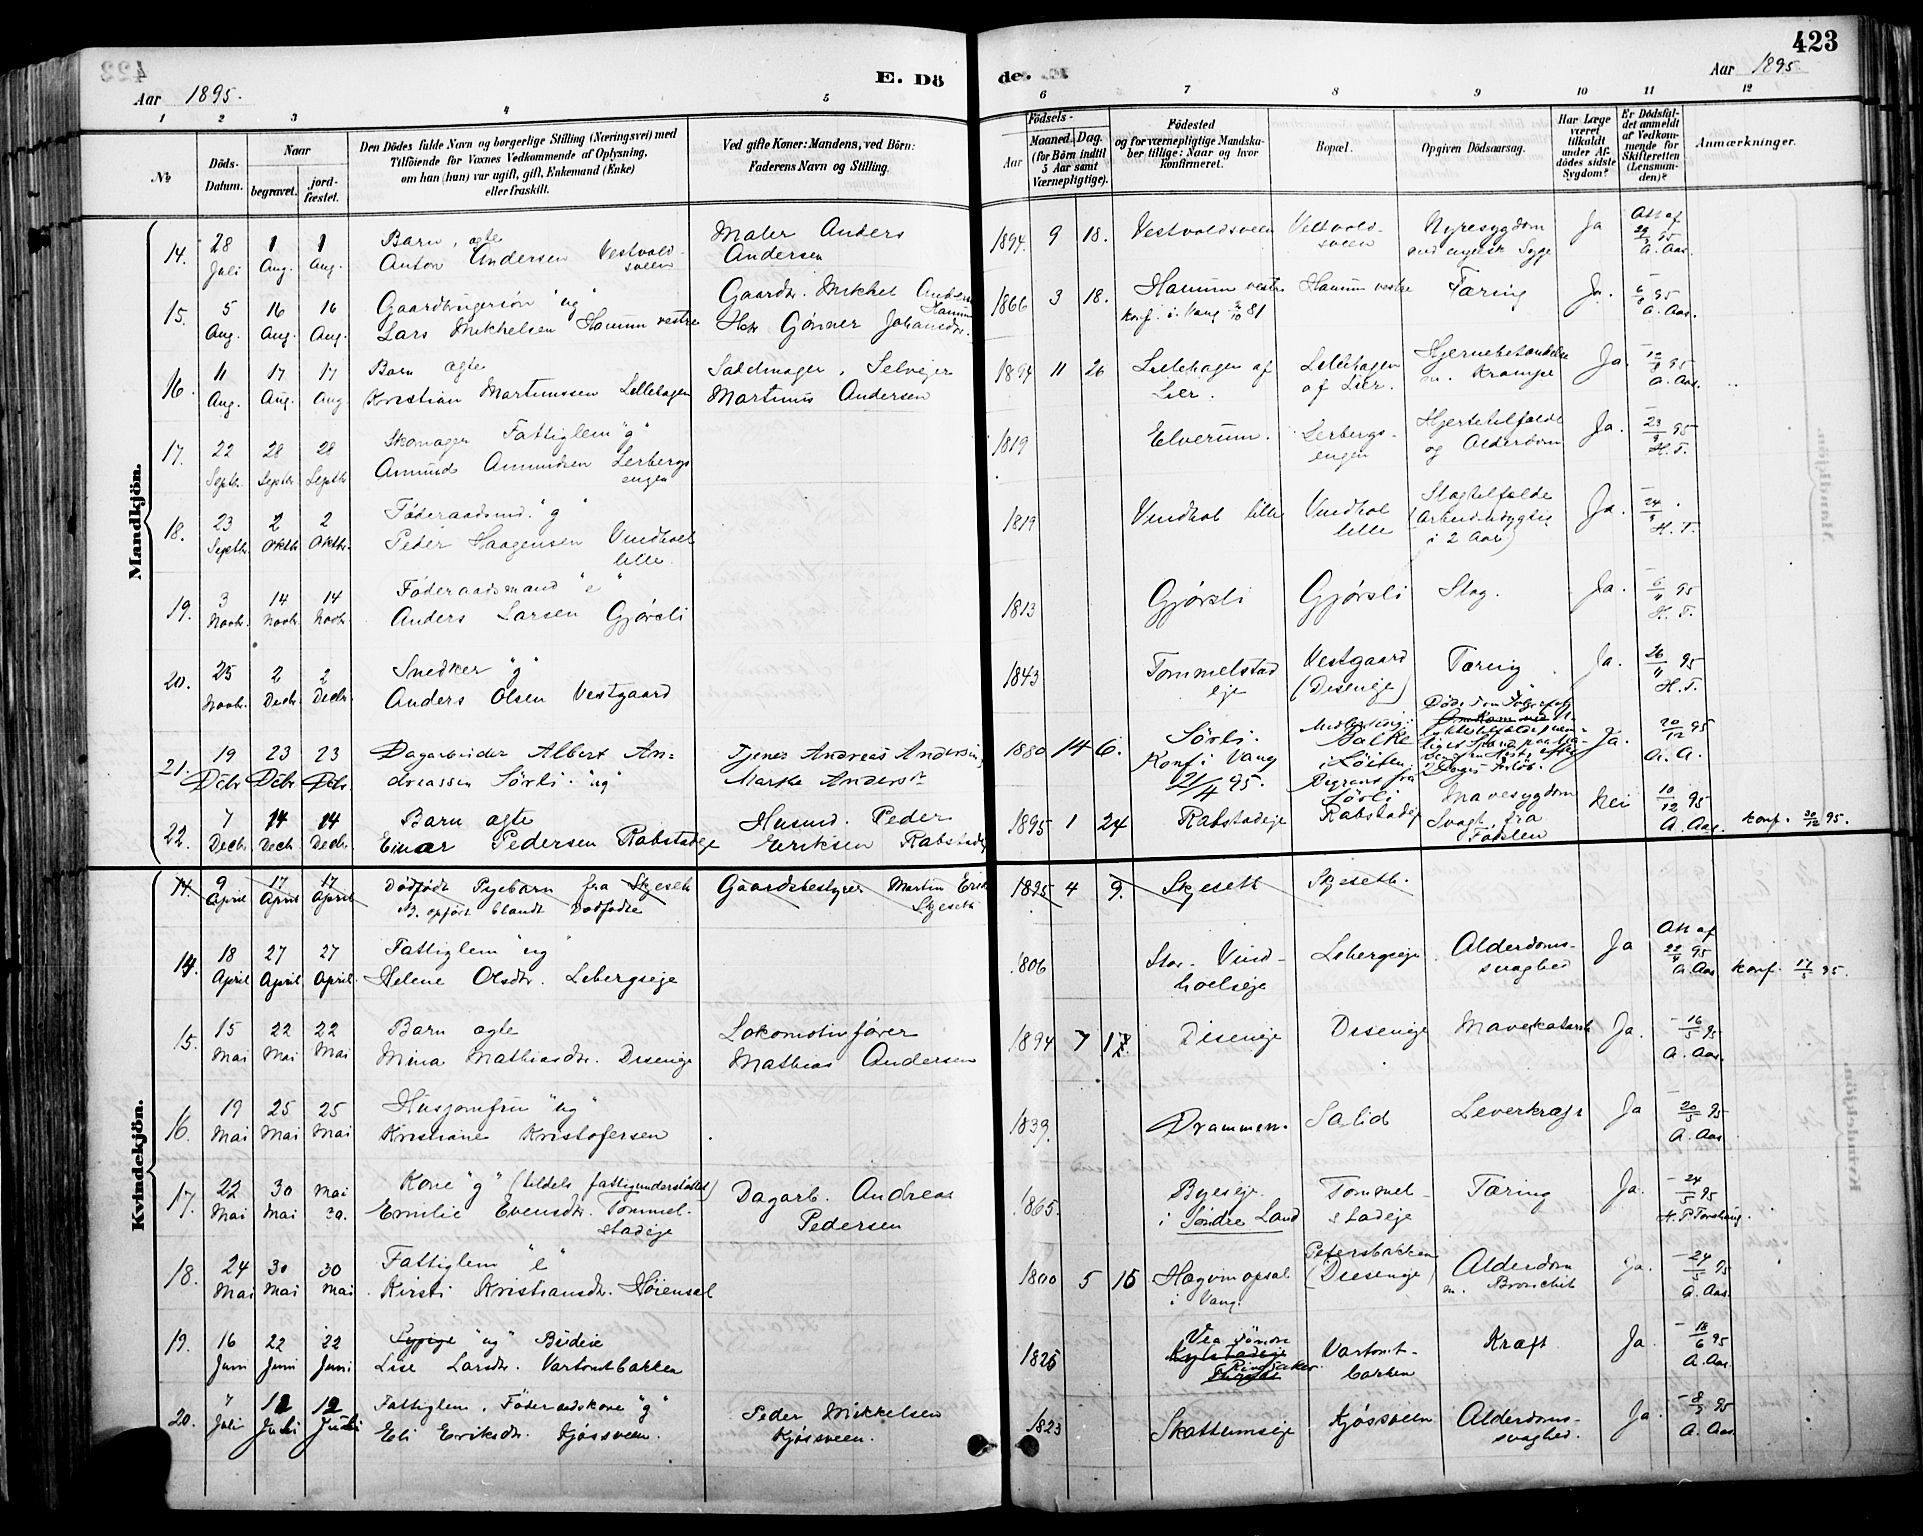 423
E. Dö
de.
Aar 1895.
Aar 1895
1 2 3 4 5 6 7 8 9 10 11 12
№
Döds-Datum.
Naar
begravet.
jord-fæstet.
Den Dödes fulde Navn og borgerlige Stilling (Næringsvei) med
Tilföiende for Voxnes Vedkommende af Oplysning,
om han (hun) var ugift, gift, Enkemand (Enke)
eller fraskilt.
Ved gifte Koner: Mandens, ved Börn:
Faderens Navn og Stilling.
Födsels-
Aar
Maaned. Dag.
(for Börn indtil
5 Aar samt
Værnepligtige).
Födested
og for værnepligtige Mandska-
ber tillige: Naar og hvor
konfirmeret.
Bopæl.
Opgiven Dödsaarsag.
Har Læge
været
tilkaldt
under Af-
dödes sidste
Sygdom?
Er Dödsfal-
det anmeldt
af Vedkom-
mende for
Skifteretten
(Lensman-
den)?
Anmærkninger.
Mandkjön.
14. 28 Juli 1 Aug. 1 Aug. Barn, ægte
Anton Andersen Vestvold-
sveen
Maler Anders
Andersen
1894 9 18. Vestvoldsveen Vestvold-
sveen
Nyresygdom
Engelsk Syge
Ja
Att af
29/7 95
A. Aas.
15. 5 Aug. 16 Aug. 16 Aug. Gaardbrugersön "ug"
Lars Mikkelsen Hamum vestre
Gaardbr. Mikkel Anders
Hamum
Gönner Johansdr.
1866 3 18. Hamum vestre
konf. i. Vang 2/10 81
Hamum vestre Tæring Ja.
6/8 95
A. Aas.
16. 11 Aug. 17 Aug. 17 Aug Barn ægte
Kristian Martinussen Lillehagen
Sadelmager, Selveier
Martinus Andersen
1894 11 26 Lillehagen af
Lier.
Lillehagen
af Lier.
Hjernebetændelse
m. Krampe
Ja.
12/8 95
A. Aas.
17. 22 Septbr. 28 Septbr. 28 Septbr Skomager Fattiglem "g"
Amund Amundsen Lerbergs
engen
1819 Elverum. Lerbergs-
engen
Hjertetilfælde
og Alderdom
Ja.
23/9 95
H. T.
18. 23 Septbr. 2 Oktbr. 2 Oktbr. Föderaadsmd. "g"
Peder Haagensen Vindhol
lille.
1819 Vindhol lille Vindhol
lille
Slagtilfælde
(Arbeidsudygtig
i 2 Aar)
Ja.
24/9
H. T.
19. 3 Novbr. 14 Novbr. 14 Novbr. Föderaadsmand "e"
Anders Larsen Gjörsli
1813 Gjörsli Gjörsli Slag. Ja.
6/11 95
H. T.
20. 25 Novbr. 2 Decbr. 2 Decbr. Snedker "g"
Anders Olsen Vestgaard
1843 Tommelstad
eje
Vestgaard
(Diseneje)
Tæring Ja.
26/11 95
H. T.
21. 19 Debr 23 Debr 23 Debr. Dagarbeider Albert An-
dreassen Sörli. "ug"
Tjener Andreas Andersen,
Marthe Andersdr
1880 14 6. Sörli.
Konf i Vang
21/4 95.
Balke
i Löiten.
Begravet fra
Sörli
Döde som Fölge af
Ja.
20/12 95
A. A.
22. 7 Decbr. 14 Decbr. 14 Decbr. Barn ægte
Einar Pedersen Rabstadeje
Husmd. Peder
Eriksen Rabstadeje
1895 1 24 Rabstadeje Rabstadeje
Mavesygdom
Svagt fra
Födslen
Nei
10/12 95
A. Aas.
konf. 30/12 95.
Kvindekjön.
14. 9 April 17 April 17 April Dödfödt Pigebarn fra Skjeseth
N. opfört blandt Dödfödte
Gaardsbestyrer Martin Erik
Skjeseth
1895 4 9. Skjeseth Skjeseth.
14. 18 April 27 April 27 April. Fattiglem "ug"
Helene Olsdr. Lebergseje
1806 Stor-Vind-
holseje
Lebergseje Alderdoms-
svaghed
Ja
Att af
22/4 95
A. Aas
konf. 17/5 95.
15. 15 Mai 22 Mai 22 Mai Barn ægte
Mina Mathiasdr. Diseneje
Lokomotivförer
Mathias Andersen
1894 7 Diseneje Diseneje Mavekatarrh Ja.
16/5 95
A. Aas.
16. 19 Mai 25 Mai 25 Mai Husjomfru "ug"
Kristiane Kristofersen
1839. Drammen. Salid Leverkræft Ja
20/5 95
A. Aas.
17. 22 Mai 30 Mai Mai 30. Kone "g" (tildels fattigunderstöttet)
Emilie Evensdr. Tommel-
stadeje
Dagarb. Andreas
Pedersen
1865. Byeseje.
i Söndre Land
Tommel-
stadeje
Tæring Ja.
24/5 95
H. P. Torshaug.
18. 24 Mai 30 Mai 30 Mai. Fattiglem "e"
Kirsti Kristiansdr. Höiensal
1800 5 15 Hagvin opsal
i Vang.
Petersbakken
(Diseneje)
Alderdom
m. Bronchit
Ja.
24/5 95
A. Aas.
19. 16 Juni 22 Juni 22 Juni Sypige "ug" Budeie
Lise Larsdr. Vartontbakken
1825 Vea Söndre
Ringsaker.
Vartont-
bakken
Kræft Ja.
18/6 95
A. Aas.
20. 7 Juli 12 Juli 12 Juli Fattiglem, Föderaadskone "g"
Eli Eriksdr. Kjössveen.
Peder Mikkelsen
Kjössveen.
1823 Skattumseje Kjössveen Alderdoms-
svaghed.
Ja.
8/7 95
A. Aas